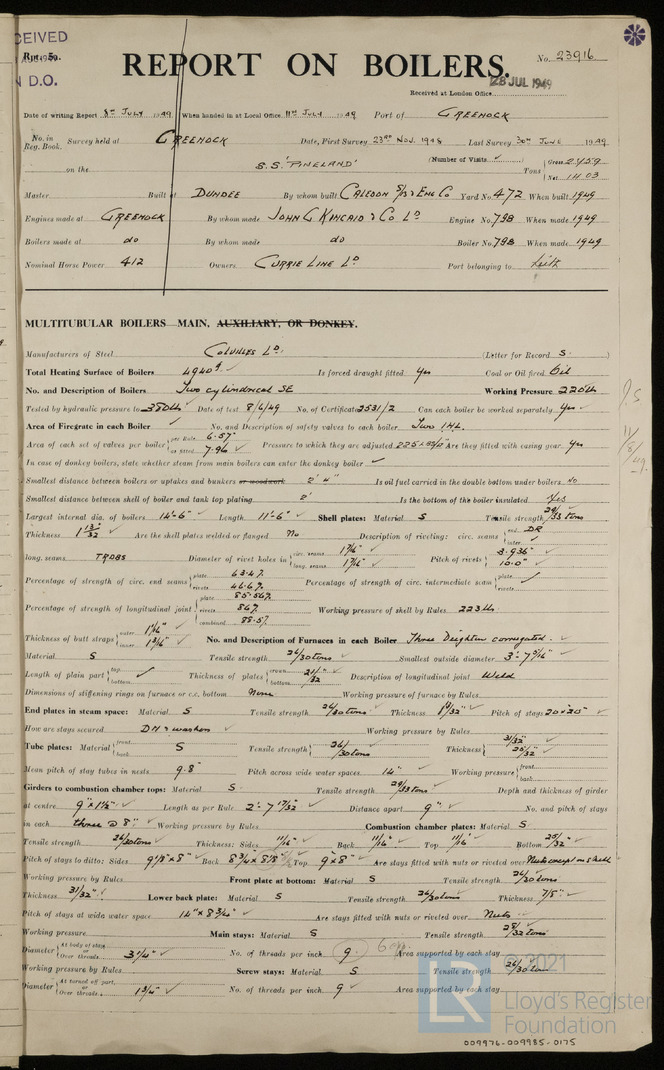 CEIVED
Rpt. 5a.
N D.O.
REPORT ON BOILERS.
No. 23916
28 JUL 1949
Received at London Office
Date of writing Report 8th July 1949 When handed in at Local Office 11th July 1949 Port of GREENOCK
No. in Reg. Book. Survey held at GREENOCK Date, First Survey 23rd Nov. 1948 Last Survey 30th June 1949
on the S.S. 'PINELAND' (Number of Visits ✓) Tons { Gross 2459 Net 1403
Master Built at DUNDEE By whom built CALEDON S/B & ENG Co Yard No. 472 When built 1949
Engines made at GREENOCK By whom made JOHN G KINCAID & Co. LD Engine No. 798 When made 1949
Boilers made at do By whom made do Boiler No. 798 When made 1949
Nominal Horse Power 412 Owners CURRIE LINE LD Port belonging to Leith
MULTITUBULAR BOILERS MAIN, AUXILIARY, OR DONKEY.
Manufacturers of Steel COLVILLES LD. (Letter for Record S.)
Total Heating Surface of Boilers 4940 Is forced draught fitted Yes Coal or Oil fired Oil
No. and Description of Boilers Two cylindrical SE Working Pressure 220 lb
Tested by hydraulic pressure to 380 lb Date of test 8/6/49 No. of Certificate 2531/2 Can each boiler be worked separately Yes
Area of Firegrate in each Boiler ✓ No. and Description of safety valves to each boiler Two I.H.L.
Area of each set of valves per boiler { per Rule 6.57 as fitted 7.96 Pressure to which they are adjusted 225 Are they fitted with easing gear Yes
In case of donkey boilers, state whether steam from main boilers can enter the donkey boiler ✓
Smallest distance between boilers or uptakes and bunkers or woodwork 2' 4" Is oil fuel carried in the double bottom under boilers No
Smallest distance between shell of boiler and tank top plating 2' Is the bottom of the boiler insulated Yes
Largest internal dia. of boilers 14'-6" Length 11'-6" Shell plates: Material S Tensile strength 29/33 tons
Thickness 1 13/32" Are the shell plates welded or flanged No Description of riveting: circ. seams { end. DR inter. ✓
long. seams. TRDBS Diameter of rivet holes in { circ. seams 1 7/16" long. seams 1 7/16" Pitch of rivets { 3.936" 10.0"
Percentage of strength of circ. end seams { plate 63.4% rivets 46.6% Percentage of strength of circ. intermediate seam { plate rivets ✓
Percentage of strength of longitudinal joint { plate 85.56% rivets 86% combined 88.5% Working pressure of shell by Rules 223 lb
Thickness of butt straps { outer 1 1/16" inner 1 3/16" No. and Description of Furnaces in each Boiler Three Deighton corrugated.
Material S Tensile strength 26/30 tons Smallest outside diameter 3'-7 9/16"
Length of plain part { top bottom ✓ Thickness of plates { crown bottom 21/32" Description of longitudinal joint Weld
Dimensions of stiffening rings on furnace or c.c. bottom None Working pressure of furnace by Rules
End plates in steam space: Material S Tensile strength 26/30 tons Thickness Pitch of stays 20"x20"
How are stays secured DN & washers Working pressure by Rules
Tube plates: Material { front back S Tensile strength { 26/30 tons Thickness { 31/32" 25/32"
Mean pitch of stay tubes in nests 9.8" Pitch across wide water spaces 14" Working pressure { front back
Girders to combustion chamber tops: Material S Tensile strength 29/33 tons Depth and thickness of girder
at centre 9"x1 1/2" Length as per Rule 2'-7 17/32" Distance apart 9" No. and pitch of stays
in each three @ 8" Working pressure by Rules Combustion chamber plates: Material S
Tensile strength 26/30 tons Thickness: Sides 11/16" Back 11/16" Top 11/16" Bottom 25/32"
Pitch of stays to ditto: Sides 9 1/8"x8" Back 8 3/4"x8 1/8" Top 9"x8" Are stays fitted with nuts or riveted over Nuts except on shell
Working pressure by Rules Front plate at bottom: Material S Tensile strength 26/30 tons
Thickness 31/32" Lower back plate: Material S Tensile strength 26/30 tons Thickness 7/8"
Pitch of stays at wide water space 14"x8 3/4" Are stays fitted with nuts or riveted over Nuts
Working pressure Main stays: Material S Tensile strength 28/32 tons
Diameter { At body of stay or Over threads 3 1/4" No. of threads per inch 9 Area supported by each stay
Working pressure by Rules Screw stays: Material S Tensile strength 26/30 ton
Diameter { At turned off part, or Over threads 1 3/4" No. of threads per inch 9 Area supported by each stay
J.S.
11/8/49.
LR
© 2021
Lloyd's Register
Foundation
009976-009985-0175